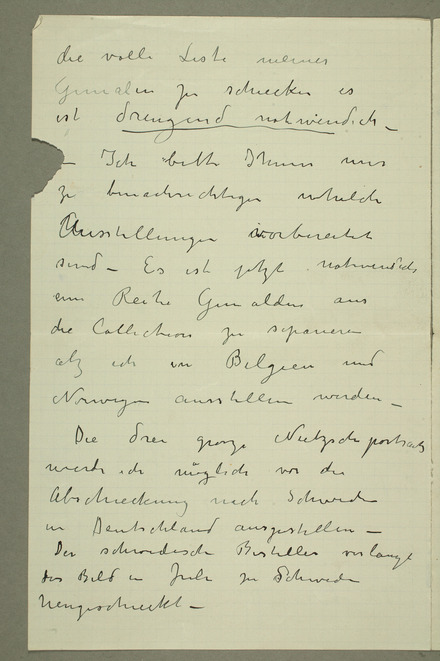 die volle Liste meiner
Gemälen zu schicken es
ist drengend notwendich –
– Ich bitte Ihnen mir
zu benachrichtigen welche
Ausstellungen vorbereitet
sind – Es ist jetzt notwendich
eine Reihe Gemälden aus
die Collection zu separieren
als ich in Belgien und
Norwegen ausstellen werden –
Die drei groze Nietzscheportraits
werde ich möglich vor die
Abschieckung nach Schweden
in Deutschland ausgestellen –
Der schwedische Besteller verlangt
das Bild in Juli zu Schweden